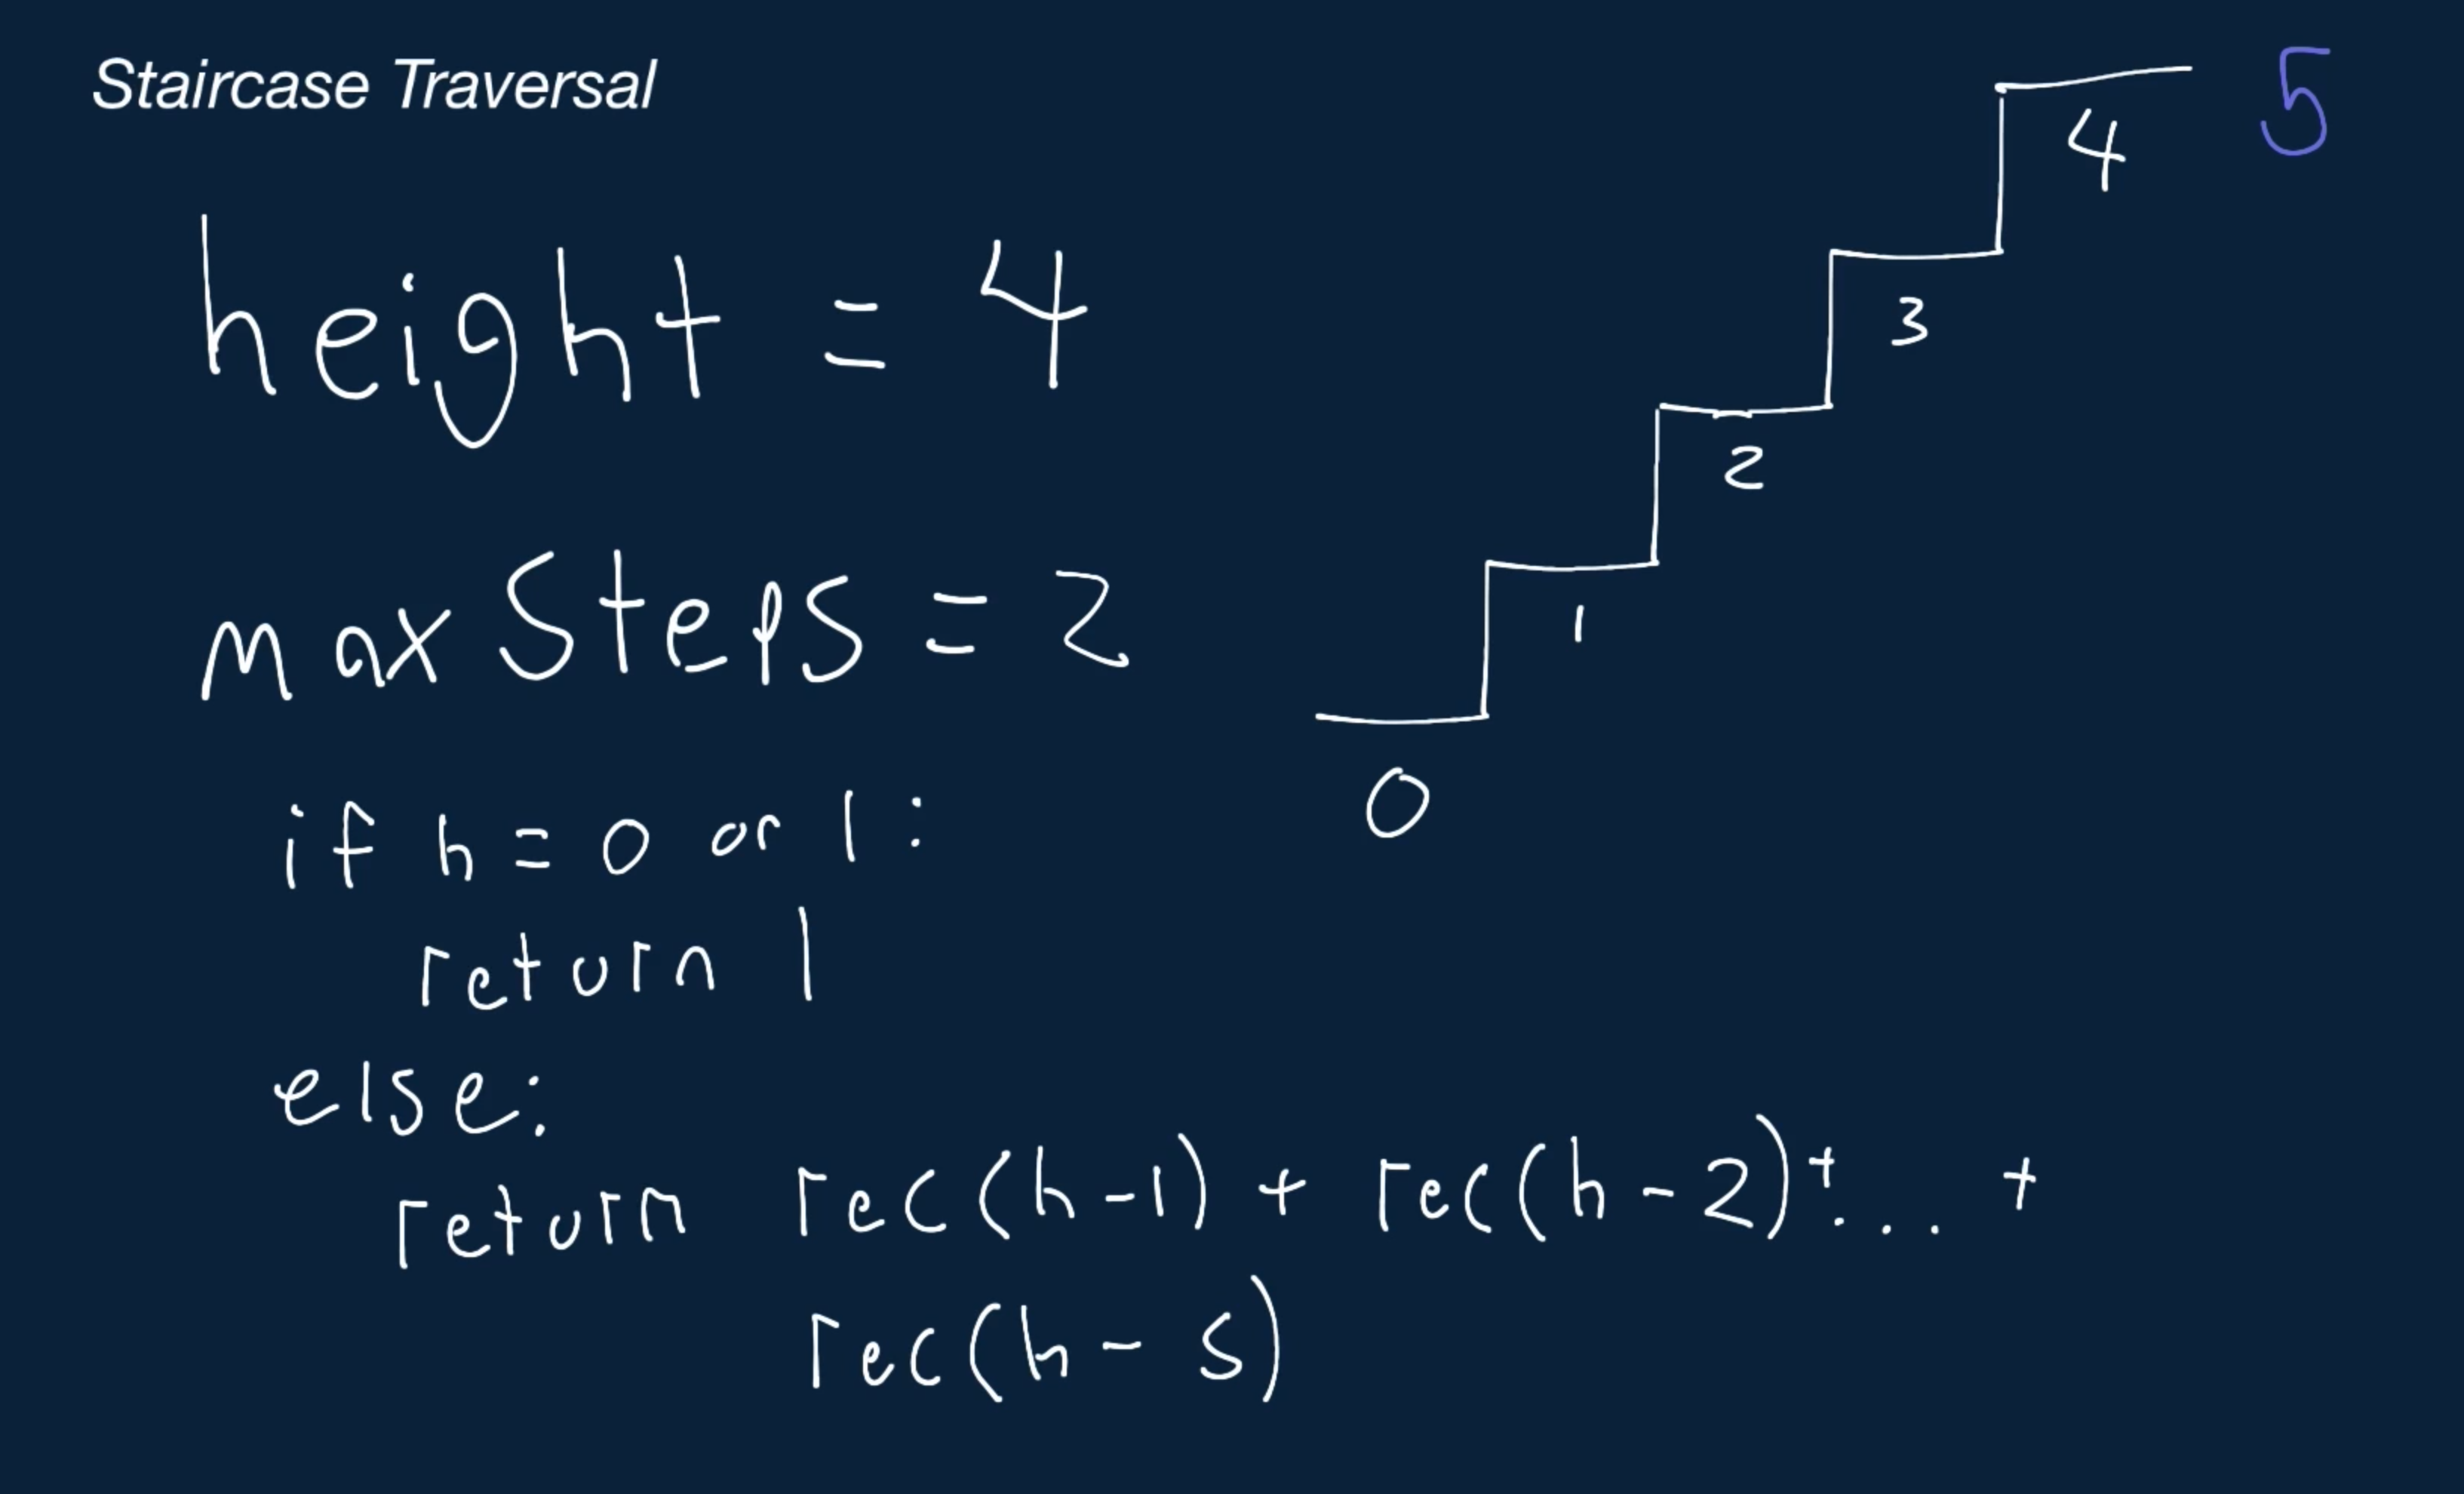 Staircase Traversal
height = 4
max Steps = 2
if h = 0 or 1 :
return 1
else:
return rec(h-1) + rec(h-2)+... +
rec(h-s)
5
4
3
2
1
0